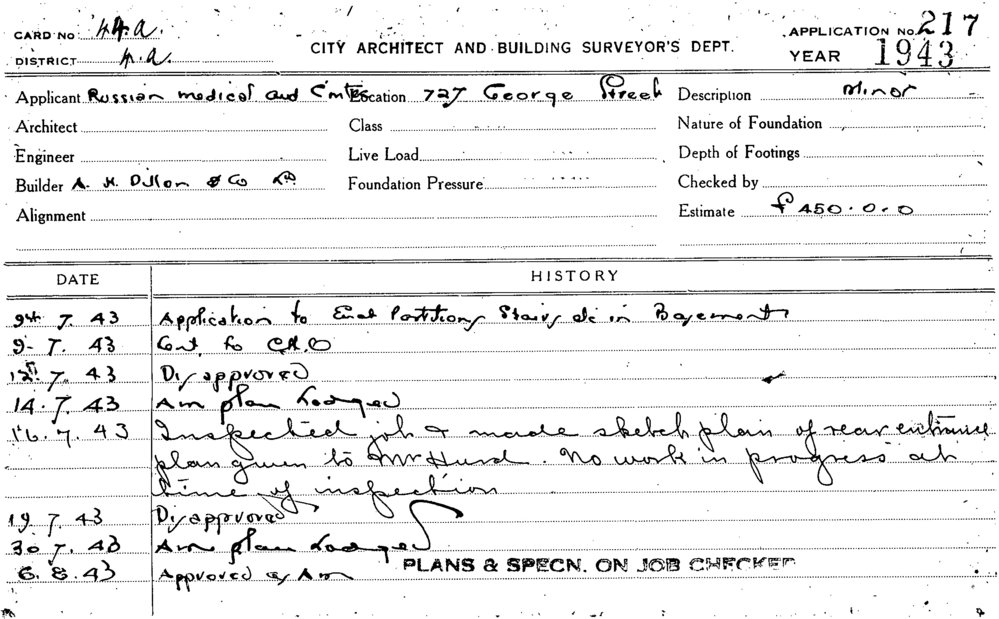 CARD NO 44a. APPLICATION NO. 217
DISTRICT 4.a. CITY ARCHITECT AND BUILDING SURVEYOR'S DEPT. YEAR 1943
Applicant Russian medical and Location 727 George Street Description Minor
Architect Class Nature of Foundation
Engineer Live Load Depth of Footings
Builder A. H. Dillon & Co Ld. Foundation Pressure Checked by
Alignment Estimate £450.0.0
DATE HISTORY
9th 7. 43 Application to Erect Partitions Stairs etc in Basement
9- 7. 43 to
12th 7. 43 Disapproved
14. 7. 43 Am plan Lodged
16. 7. 43 Inspected job & made sketch plan of rear entrance
plan given to Mr Hurd. No work in progress at
time of inspection
19. 7. 43 Disapproved
30. 7. 43 Am plan Lodged
6. 8. 43 Approved as Am PLANS & SPECN. ON JOB CHECKED